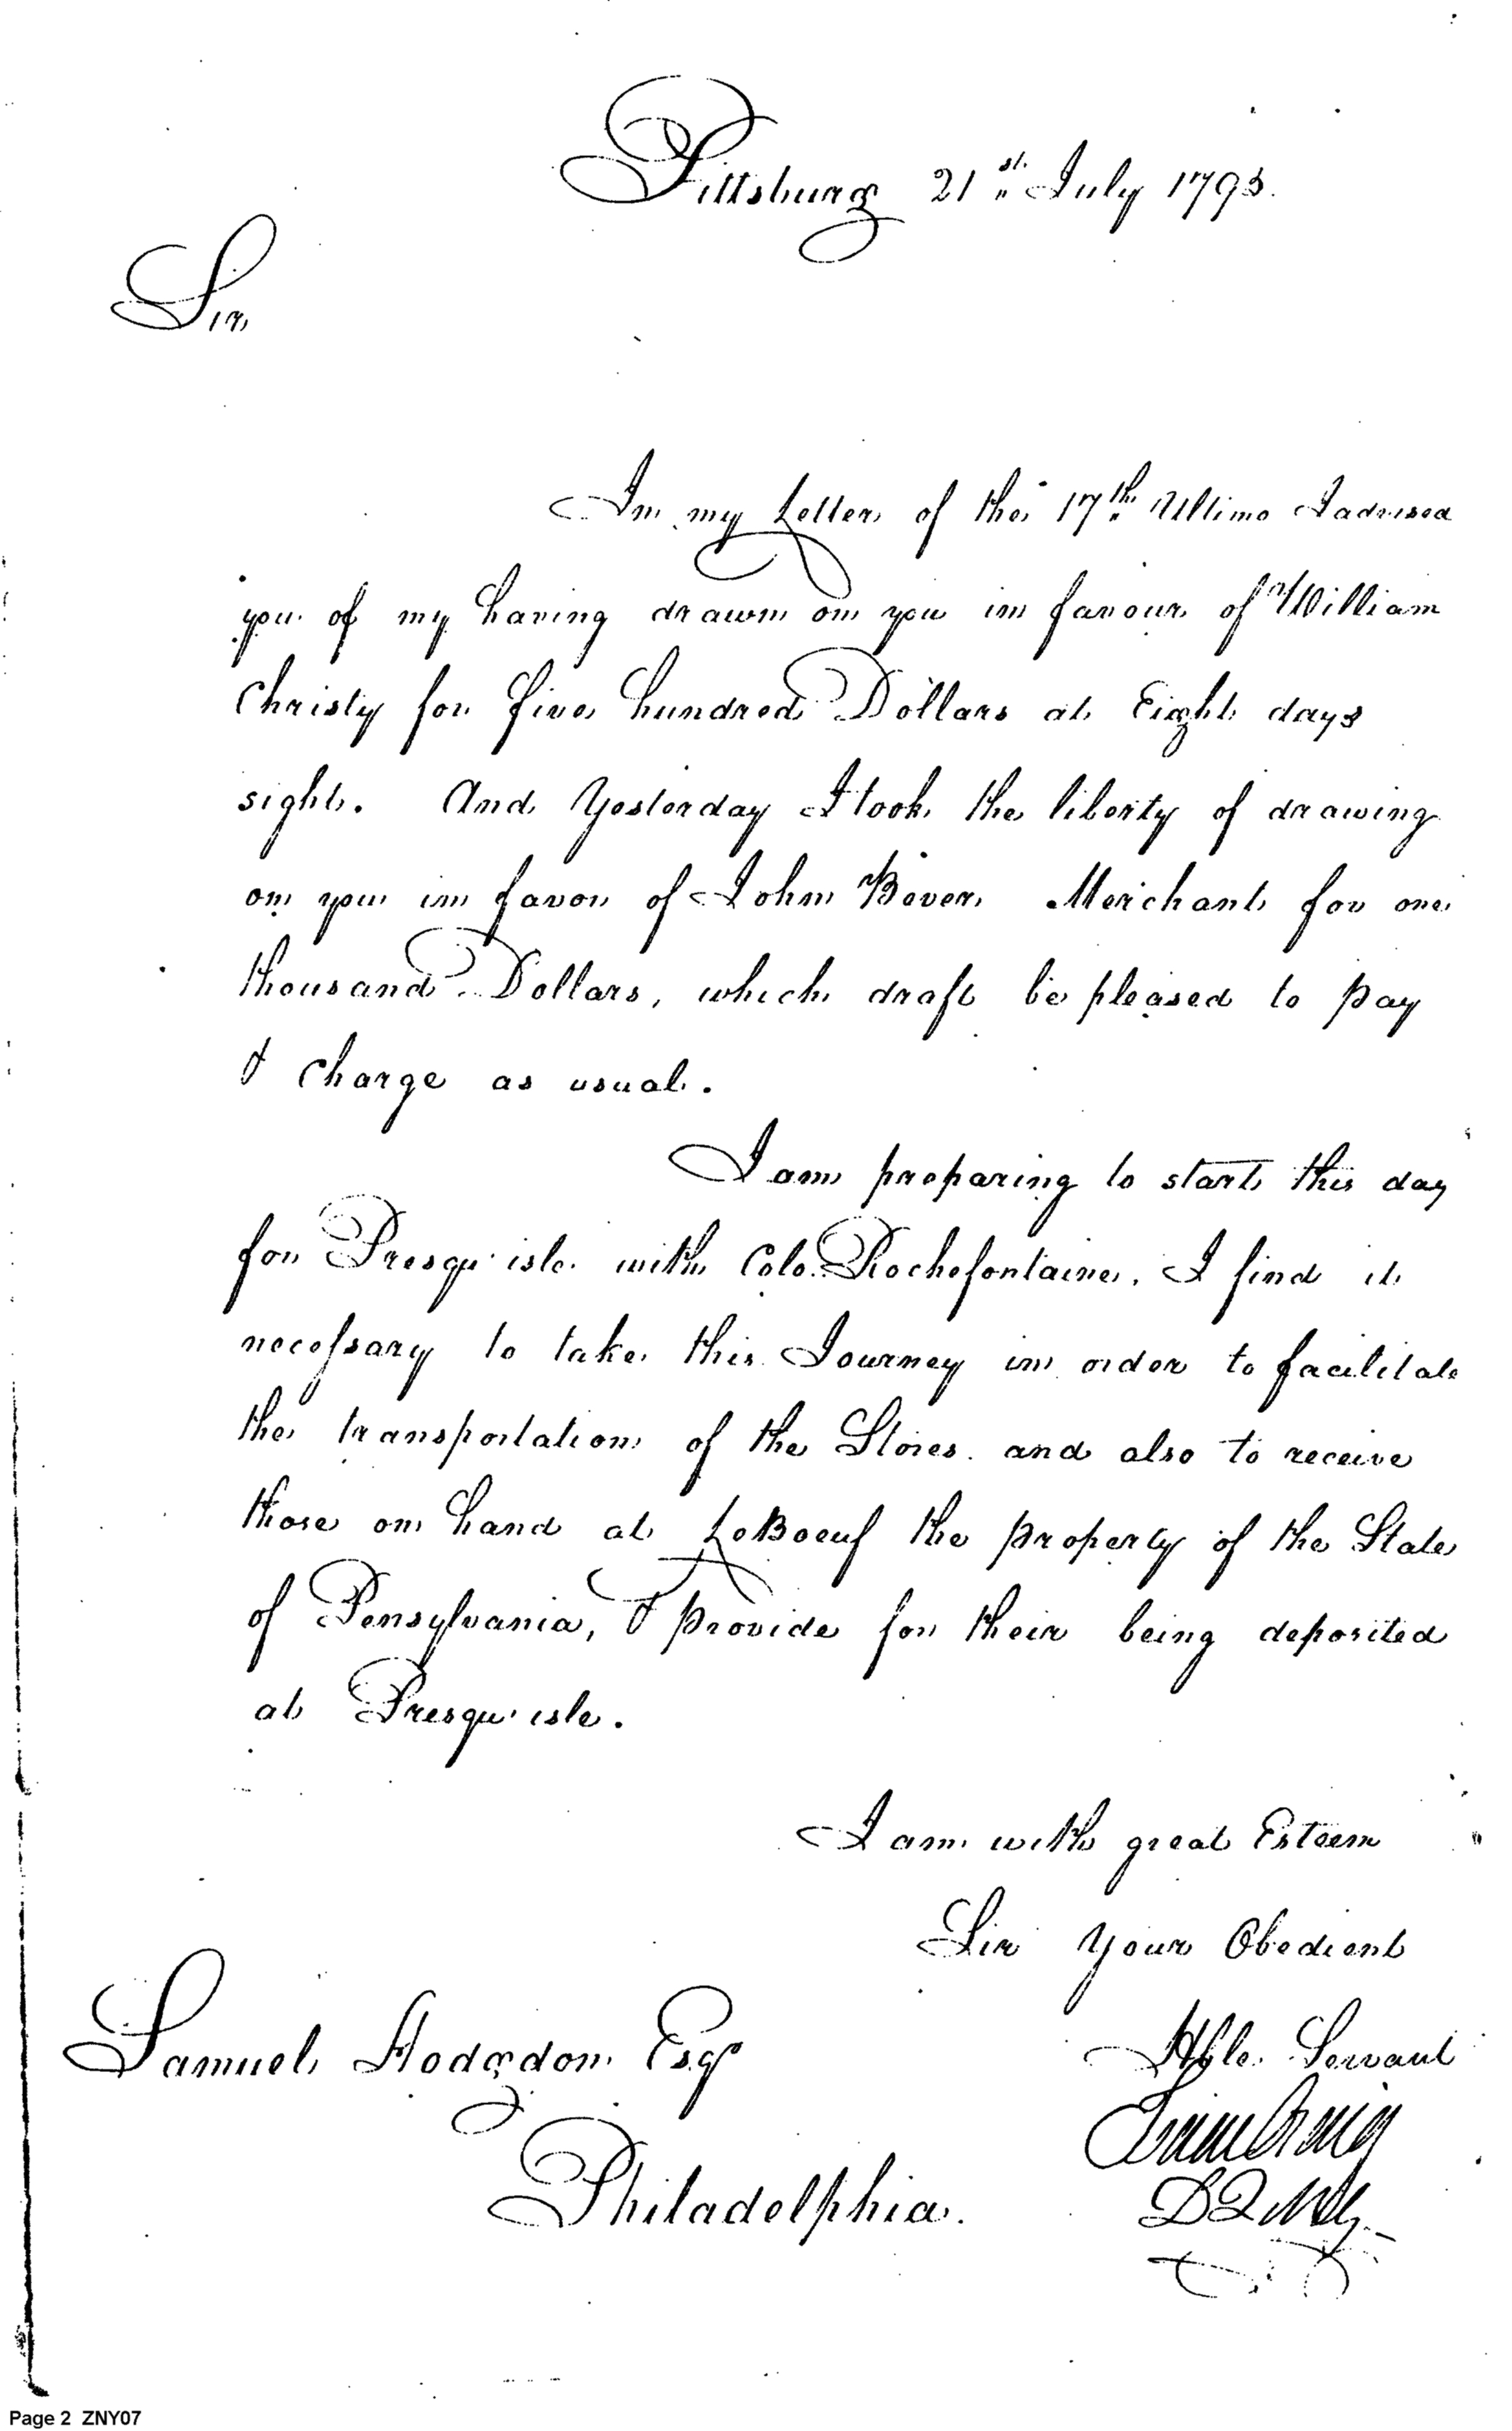 Pittsburg 21st July 1795.
Sir
In my Letter of the 17th Ultimo I advised
you of my having drawn on you in favour of William
Christy for five hundred Dollars at Eight days
sight. And Yesterday I took the liberty of drawing
on you in favor of John Bever Merchant for one
thousand Dollars, which draft be pleased to pay
& Charge as usual.
I am preparing to start this day
for Presqu'isle with Colo. Rochefontaine, I find it
necessary to take this Journey in order to facilitate
the transportation of the Stores and also to receive
those on hand at LeBoeuf the property of the State
of Pensylvania, & provide for their being deposited
at Presqu'isle.
I am with great Esteem
Sir Your Obedient
Hble. Servant
Samuel Hodgdon Esqr
Isaac Craig
Philadelphia.
D Q M G
Page 2 ZNY07